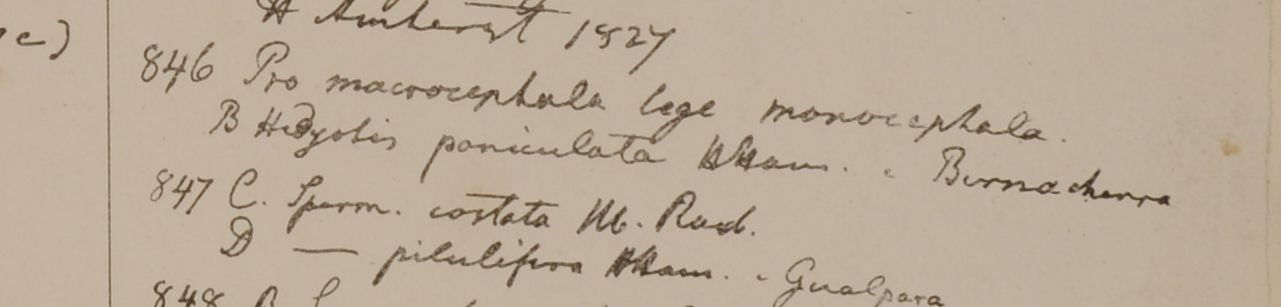 e)
H Amherst 1827
846 Pro macrocephala lege monocephala.
B Hedyotis paniculata HHam. .
847 C. Sperm. costata Hb. Roxb.
D — pilulifera HHam. . Gualpara
848 B